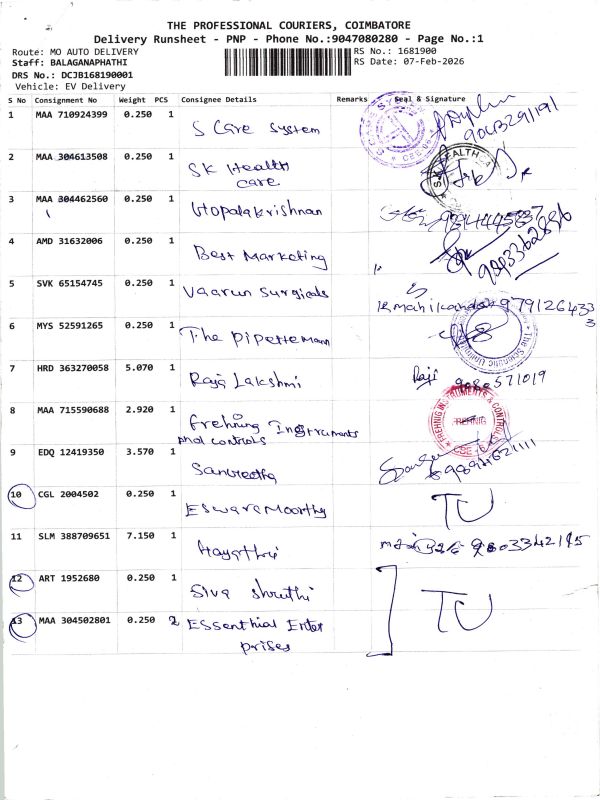 THE PROFESSIONAL COURIERS, COIMBATORE
Delivery Runsheet - PNP - Phone No.:9047080280 - Page No.:1
Route: MO AUTO DELIVERY
RS No.: 1681900
Staff: BALAGANAPHATHI
RS Date: 07-Feb-2026
DRS No.: DCJB168190001
Vehicle: EV Delivery
S No Consignment No Weight PCS Consignee Details Remarks Seal & Signature
1 MAA 710924399 0.250 1 S Care System
2 MAA 304613508 0.250 1 SK Health
care
3 MAA 304462560 0.250 1 Gopalakrishnan
4 AMD 31632006 0.250 1 Best Marketing
5 SVK 65154745 0.250 1 Vaarun Surgicals
6 MYS 52591265 0.250 1 The Pipettemann
7 HRD 363270058 5.070 1 Raja Lakshmi Raji 9080571019
8 MAA 715590688 2.920 1 Frehning Instruments
And controls
FREHNIG INSTRUMENTS & CONTROLS
FREHNIG
9 EDQ 12419350 3.570 1 Sangeetha
10 CGL 2004502 0.250 1 Eswaramoorthy TU
11 SLM 388709651 7.150 1 Gayathri
12 ART 1952680 0.250 1 Siva Shruthi
13 MAA 304502801 0.250 2 Essenthial Enter TU
prises